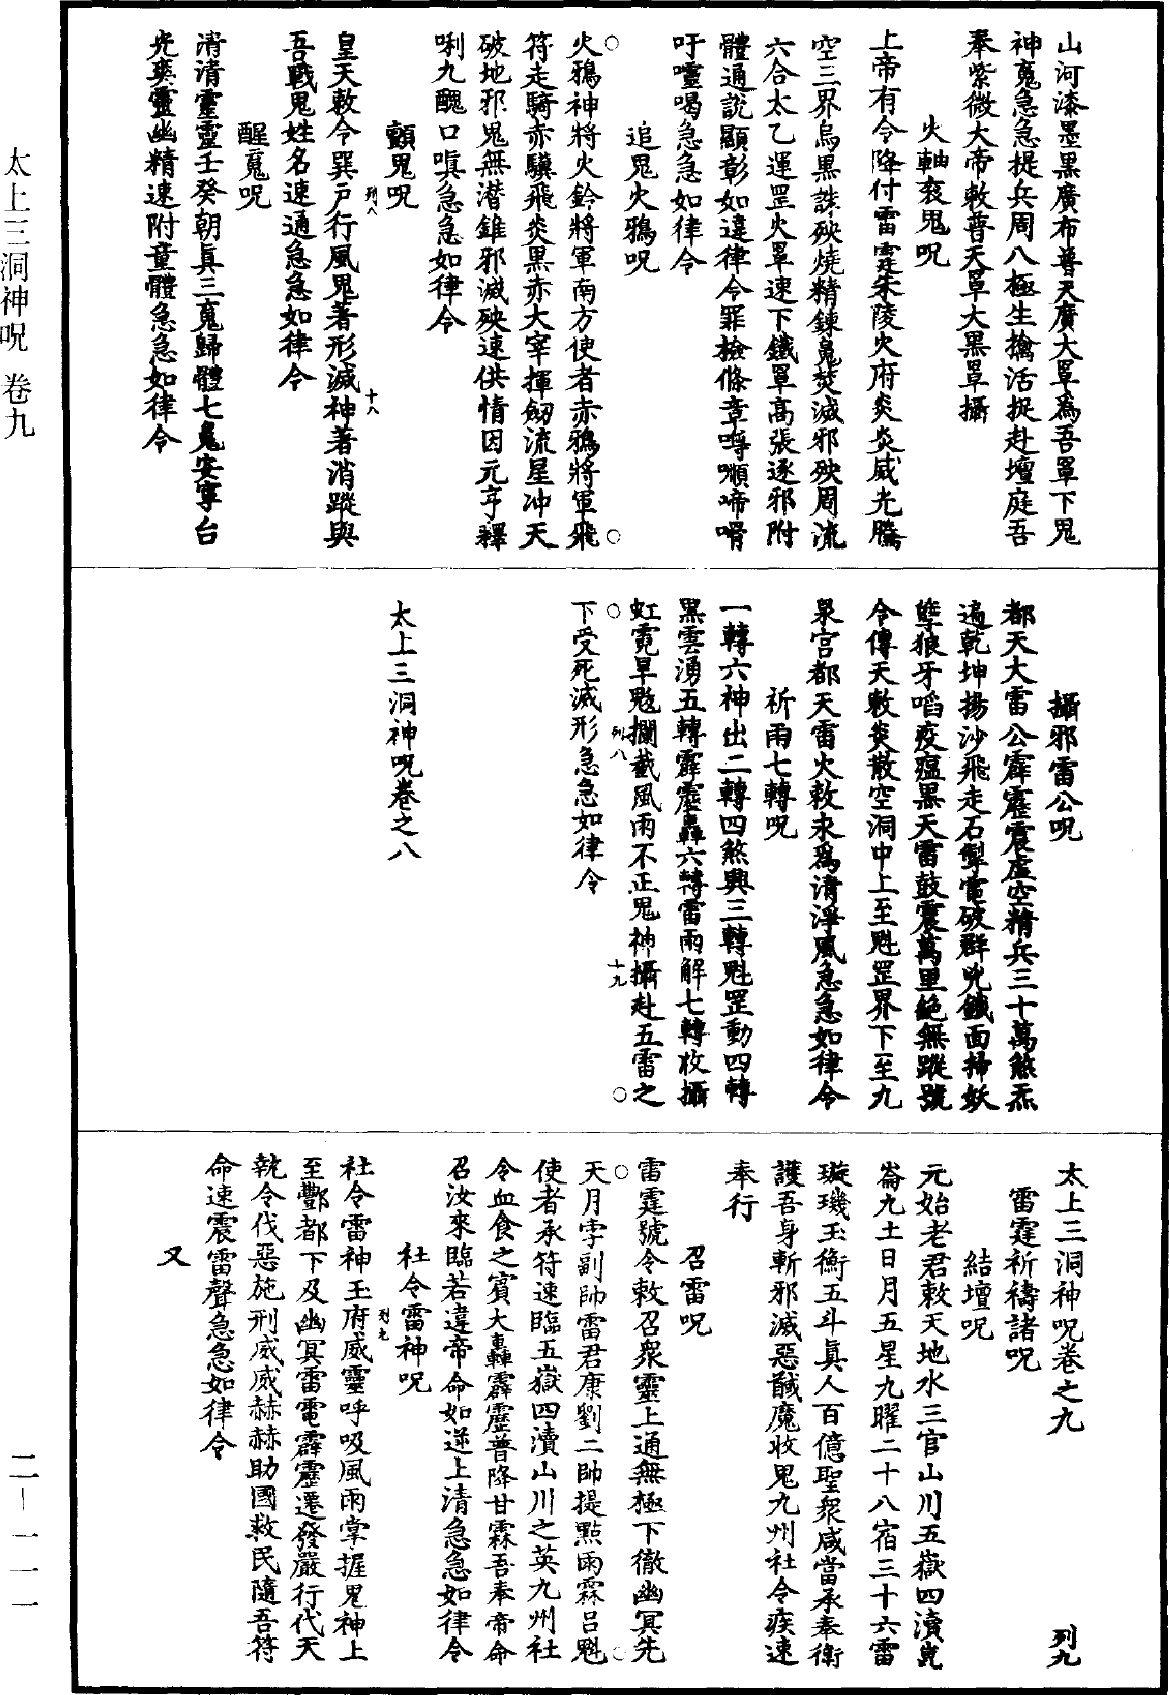 山河漆墨黑廣布普天廣大罩爲吾罩下鬼
神䰟急急提兵周八極生擒活捉赴壇庭吾
奉紫微大帝敕普天罩大黑罩攝
火軸衮鬼呪
上帝有令降付雷霆朱陵火府炎炎威光騰
空三界烏黑誅殃燒精鍊䰟焚滅邪殃周流
六合太乙運罡火罩速下鐵罩高張逐邪附
體通說顯彰如違律令罪檢條章
吁囁喝急急如律令
追鬼火鴉呪
火鴉神將火鈴將軍南方使者赤鴉將軍飛
符走騎赤驥飛炎黑赤大宰揮劒流星冲天
破地邪鬼無潜錐邪滅殃速供情因元亨釋
唎九醜口嗔急急如律令
顫鬼呪
列八
皇天敕令巽戶行風鬼著形滅神著消蹤與
十八
吾戰鬼姓名速通急急如律令
醒䰟呪
清清靈靈壬癸朝眞三䰟歸體七䰟安寧台
光爽靈幽精速附童體急急如律令
攝邪雷公呪
都天大雷公霹靂震虛空精兵三十萬煞炁
遍乾坤揚沙飛走石掣電破群兇鐵面掃妖
孽狼牙啗疫瘟黑天雷鼓震萬里絕無蹤號
令傳天敕炎散空洞中上至魁罡界下至九
泉宫都天雷火敕永爲清淨風急急如律令
祈雨七轉呪
一轉六神出二轉四煞興三轉魁罡動四轉
黑雲湧五轉霹靂轟六轉雷雨解七轉收攝
虹霓旱魃攔截風雨不正鬼神攝赴五雷之
列八
十九
下受死滅形急急如律令
太上三洞神呪卷之八
太上三洞神呪卷之九
列九
雷霆祈禱諸呪
結壇呪
元始老君敕天地水三官山川五嶽四瀆崑
崙九土日月五星九曜二十八宿三十六雷
璇璣玉衡五斗眞人百億聖衆咸當承奉衛
護吾身斬邪滅惡馘魔收鬼九州社令疾速
奉行
召雷呪
雷霆號令敕召衆靈上通無極下徹幽冥先
天月孛副帥雷君康劉二帥提點雨霖吕魁
使者承符速臨五嶽四瀆山川之英九州社
令血食之賓大轟霹靂普降甘霖吾奉帝命
召汝來臨若違帝命如逆上清急急如律令
社令雷神呪
列九
社令雷神玉府威靈呼吸風雨掌握鬼神上
至酆都下及幽冥雷電霹靂遷發嚴行代天
執令伐惡施刑威威赫赫助國救民隨吾符
命速震雷聲急急如律令
又
太上三洞神呪 卷九
二－一一一